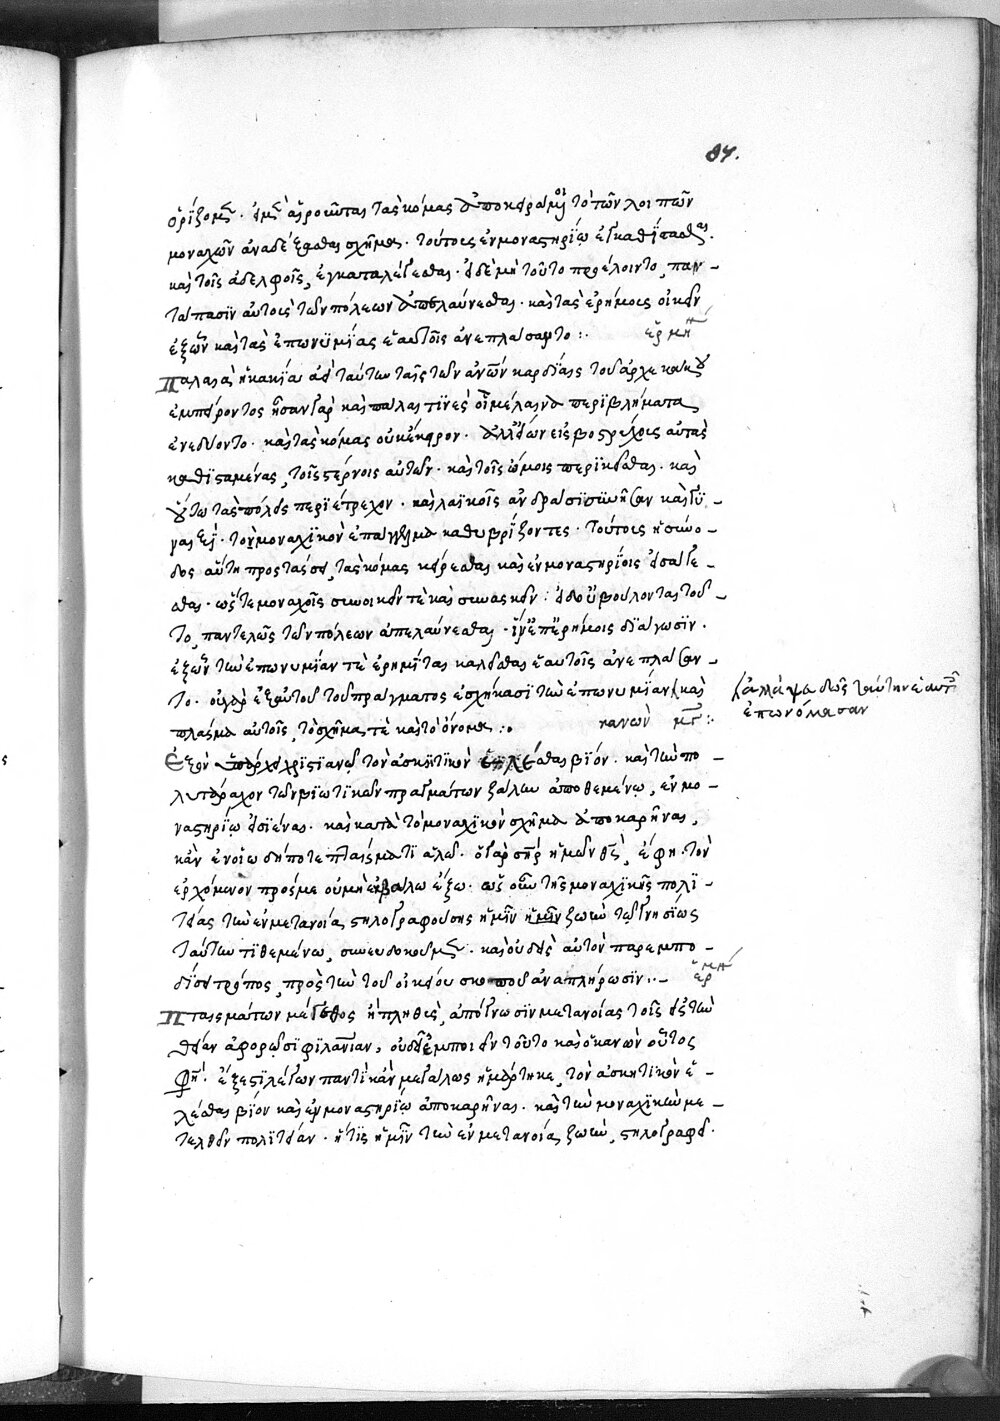 87.
ὁρίζομεν. εἰ μὲν αἱροῦνται τὰς κόμας ἀποκειράμενοι τὸ τῶν λοιπῶν
μοναχῶν ἀναδέξασθαι σχῆμα. τούτους ἐν μοναστηρίῳ ἐγκαθίστασθαι.
καὶ τοῖς ἀδελφοῖς ἐγκαταλέγεσθαι. εἰ δὲ μὴ τοῦτο προέλοιντο, παν-
τάπασιν αὐτοὺς τῶν πόλεων ἀπελαύνεσθαι. καὶ τὰς ἐρήμους οἰκεῖν
ἐξ ὧν καὶ τὰς ἐπωνυμίας ἑαυτοῖς ἀνεπλάσαντο :. ἑρμη
Παλαιὰ ἡ κακία
ἐμπείροντος ἦσαν γὰρ καὶ πάλαι τινὲς οἳ μέλαινα περιβλήματα
ἐνεδύοντο. καὶ τὰς κόμας οὐκ ἔκειρον. ἀλλ' εἴων εἰς βοστρύχους αὐτὰς
καθισταμένας, τοῖς στέρνοις αὐτῶν. καὶ τοῖς ὤμοις περικεῖσθαι. καὶ
οὕτω τὰς πόλεις περιέτρεχον. καὶ λαϊκοῖς ἀνδράσι συνῆσαν καὶ γυ-
ναιξί. τὸ μοναχικὸν ἐπάγγελμα καθυβρίζοντες. τούτους ἡ σύνο-
δος αὕτη προστάσσει, τὰς κόμας κείρεσθαι καὶ ἐν μοναστηρίοις εἰσάγε-
σθαι. ὥστε μοναχοῖς συνοικεῖν τε καὶ συνασκεῖν: εἰ δ' οὐ βούλονται τοῦ-
το, παντελῶς τῶν πόλεων ἀπελαύνεσθαι. ἵν' ἐπ' ἐρήμοις διάγωσιν.
ἐξ ὧν τὴν ἐπωνυμίαν τὲ ἐρημίτας καλεῖσθαι ἑαυτοῖς ἀνεπλάσαν-
το. οὐ γὰρ ἐξ αὐτοῦ τοῦ πράγματος ἐσχήκασι τὴν ἐπωνυμίαν (καὶ
(ἀλλὰ ψευδῶς ταύτην ἑαυτοῖς
ἐπωνόμασαν
πλάσμα αὐτοῖς, τὸ σχῆμα τὲ καὶ τὸ ὄνομα :. κανὼν μγ :.
Ἐξὸν ὑπάρχει χριστιανῷ τὸν ἀσκητικὸν ἑλέσθαι βίον. καὶ τὴν πο-
λυτάραχον τῶν βιωτικῶν πραγμάτων ζάλην ἀποθεμένῳ, ἐν μο-
ναστηρίῳ εἰσιέναι. καὶ κατὰ τὸ μοναχικὸν σχῆμα ἀποκαρῆναι,
κἂν ἐν οἵῳ δήποτε πταίσματι ἁλῷ. ὁ γὰρ σηρ ἡμῶν θς, ἔφη. τὸν
ἐρχόμενον πρός με οὐ μὴ ἐκβάλω ἔξω. ὡς οὖν τῆς μοναχικῆς πολι-
τείας τὴν ἐν μετανοίᾳ στηλογραφούσης ἡμῖν ἡμῖν ζωὴν τῷ γνησίως
ταύτην τιθεμένῳ, συνευδοκοῦμεν. καὶ οὐδεὶς αὐτὸν παρεμπο-
δίσει τρόπος, πρὸς τὴν τοῦ οἰκείου σκοποῦ ἀναπλήρωσιν :. ἑρμη
Πταισμάτων μέγεθος ἢ πλῆθος, ἀπόγνωσιν μετανοίας τοῖς εἰς τὴν
θείαν ἀφορῶσι φιλανίαν, οὐδ' ἐμποιεῖν τοῦτο καὶ ὁ κανὼν οὗτος
φησί. ἔξεστι λέγων παντὶ κἂν μεγάλως ἡμάρτηκε, τὸν ἀσκητικὸν ἑ-
λέσθαι βίον καὶ ἐν μοναστηρίῳ ἀποκαρῆναι. καὶ τὴν μοναχικὴν με-
τελθεῖν πολιτείαν. ἥτις ἡμῖν τὴν ἐν μετανοίᾳ ζωὴν, στηλογραφεῖ.